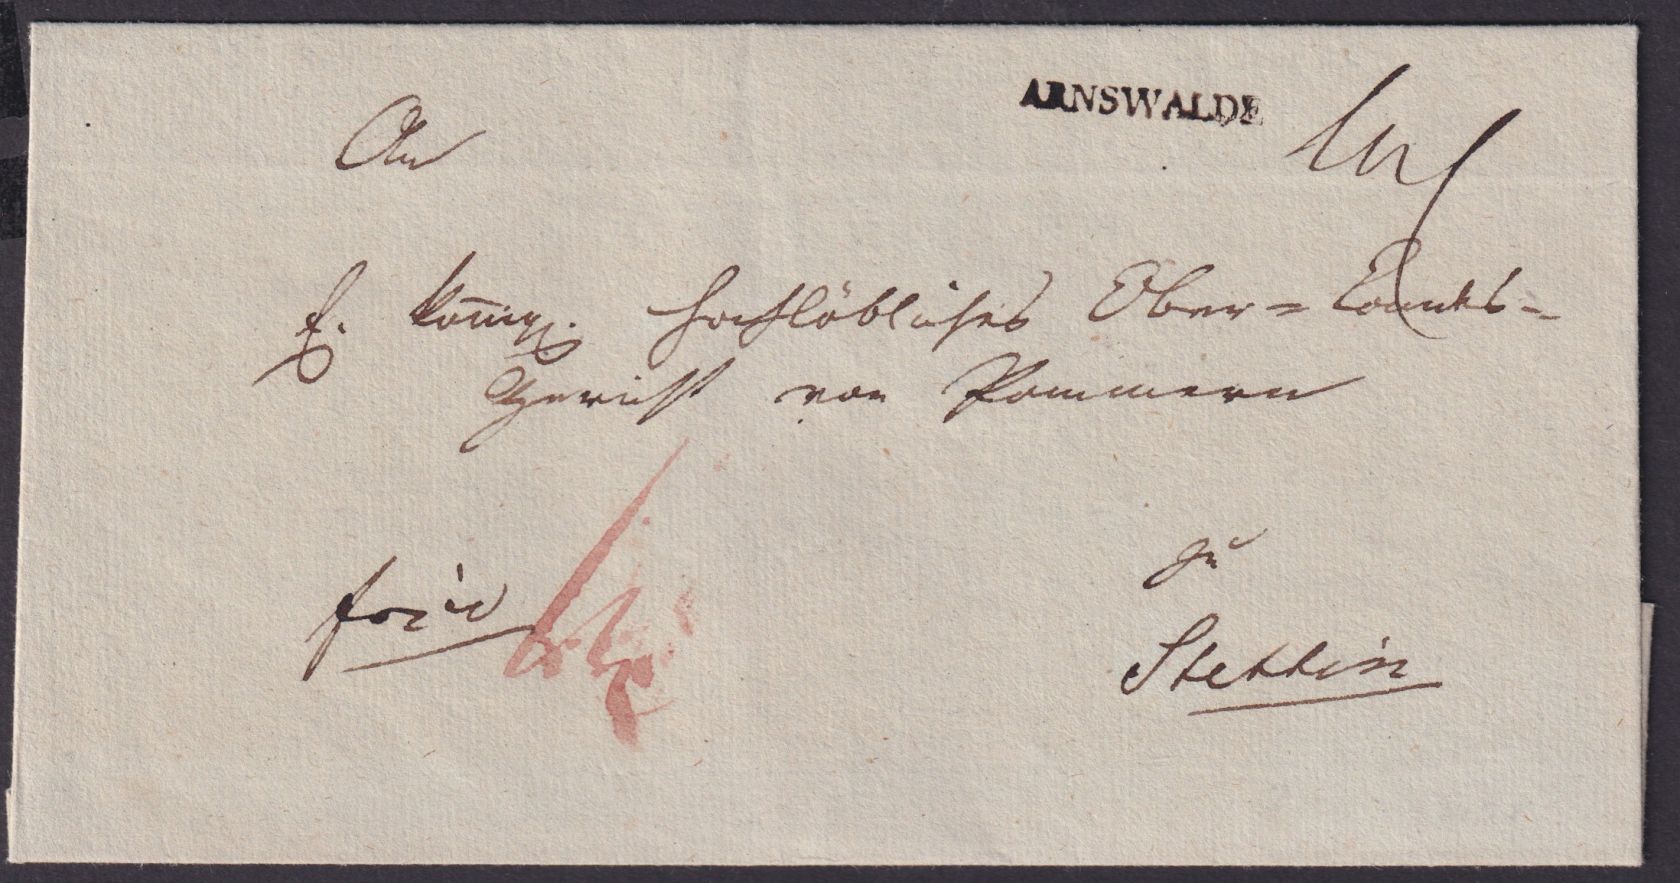 ARNSWALDE
An
E. König. Hochlöbliches Ober-Landes-
Gericht von Pommern
zu
Stettin